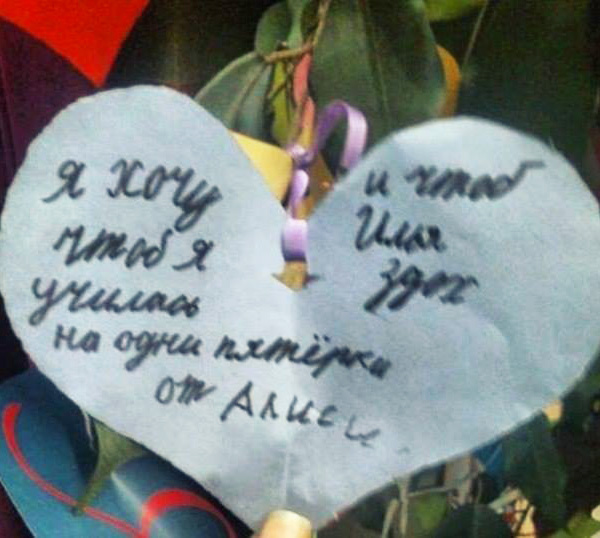 Я хочу
чтоб я
училась
на одни пятёрки
от Алисы.
и чтоб
Илья
здох